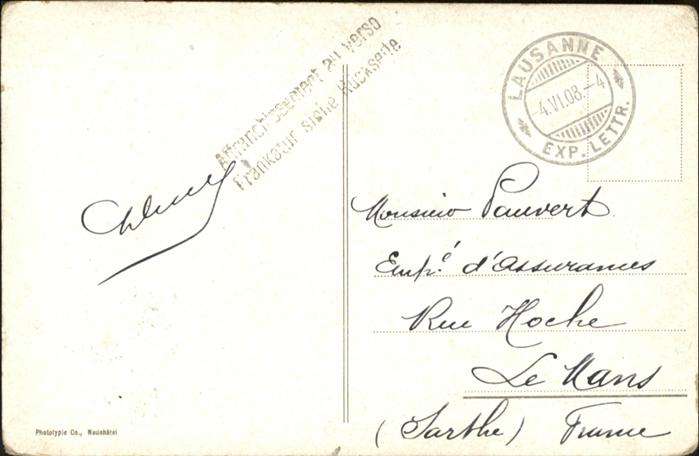 Affranchissement au verso
Frankatur siehe Rückseite
LAUSANNE
-4.VI.08.-4
EXP. LETTR.
Monsieur Pauvert
Empé d'Assurances
Rue Hoche
Le Mans
(Sarthe) France
Phototypie Co., Neuchâtel